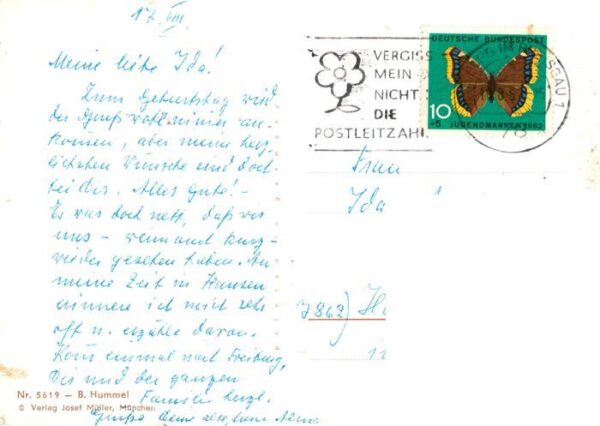 17. VIII.
Meine liebe Ida!
Zum Geburtstag wird
der Gruß wohl nimmer an-
kommen, aber meine herz-
lichsten Wünsche sind doch
bei dir. Alles Gute! –
Es war doch nett, daß wir
uns – wenn auch kurz –
wieder gesehen haben. An
meine Zeit in Hausen
erinnere ich mich sehr
oft u. erzähle davon.
Komm einmal nach Freiburg,
Dir und der ganzen
Familie herzl.
Grüße Deine alte, treue
Nr. 5619 – B. Hummel
© Verlag Josef Müller, München
VERGISS
MEIN
NICHT
DIE
POSTLEITZAHL
DEUTSCHE BUNDESPOST
10
+5 JUGENDMARKEN 1962
SGAU 1
78
Frau
Ida
(7862) H